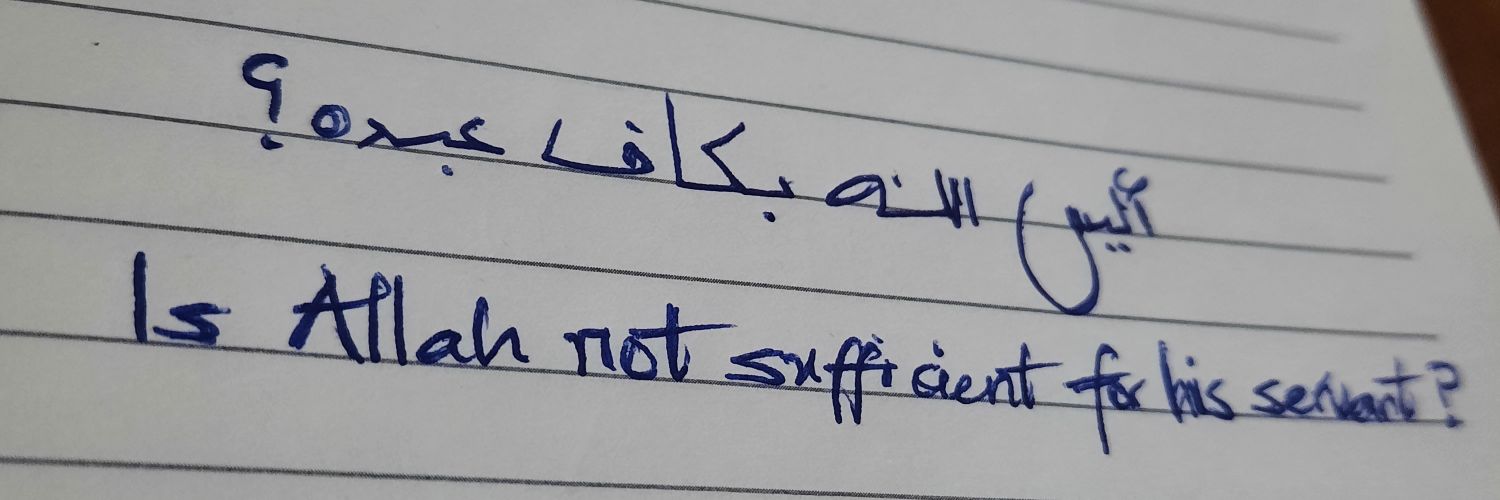 أليس الله بكاف عبده؟
Is Allah not sufficient for his servant?